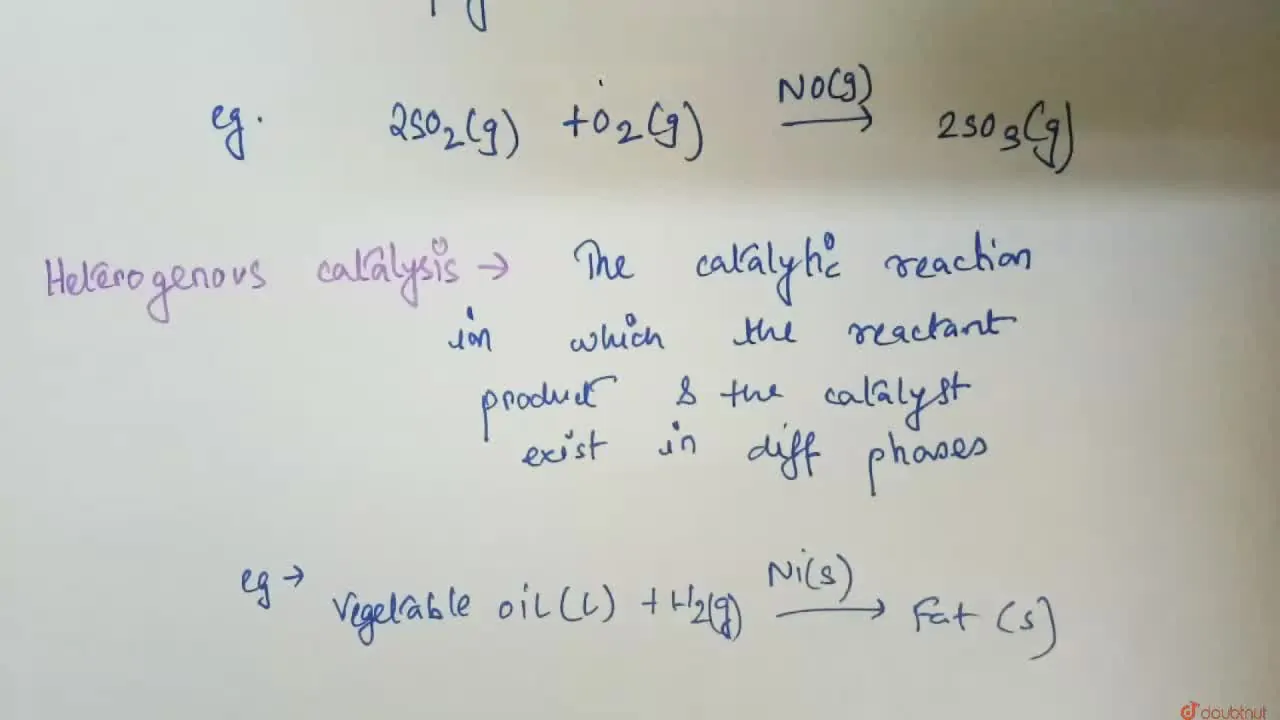 eg. 2SO2(g) + O2(g) NO(g) → 2SO3(g)
Heterogenous catalysis → The catalytic reaction
in which the reactant
product & the catalyst
exist in diff phases
eg → Vegetable oil(l) + H2(g) Ni(s) → Fat (s)
doubtnut